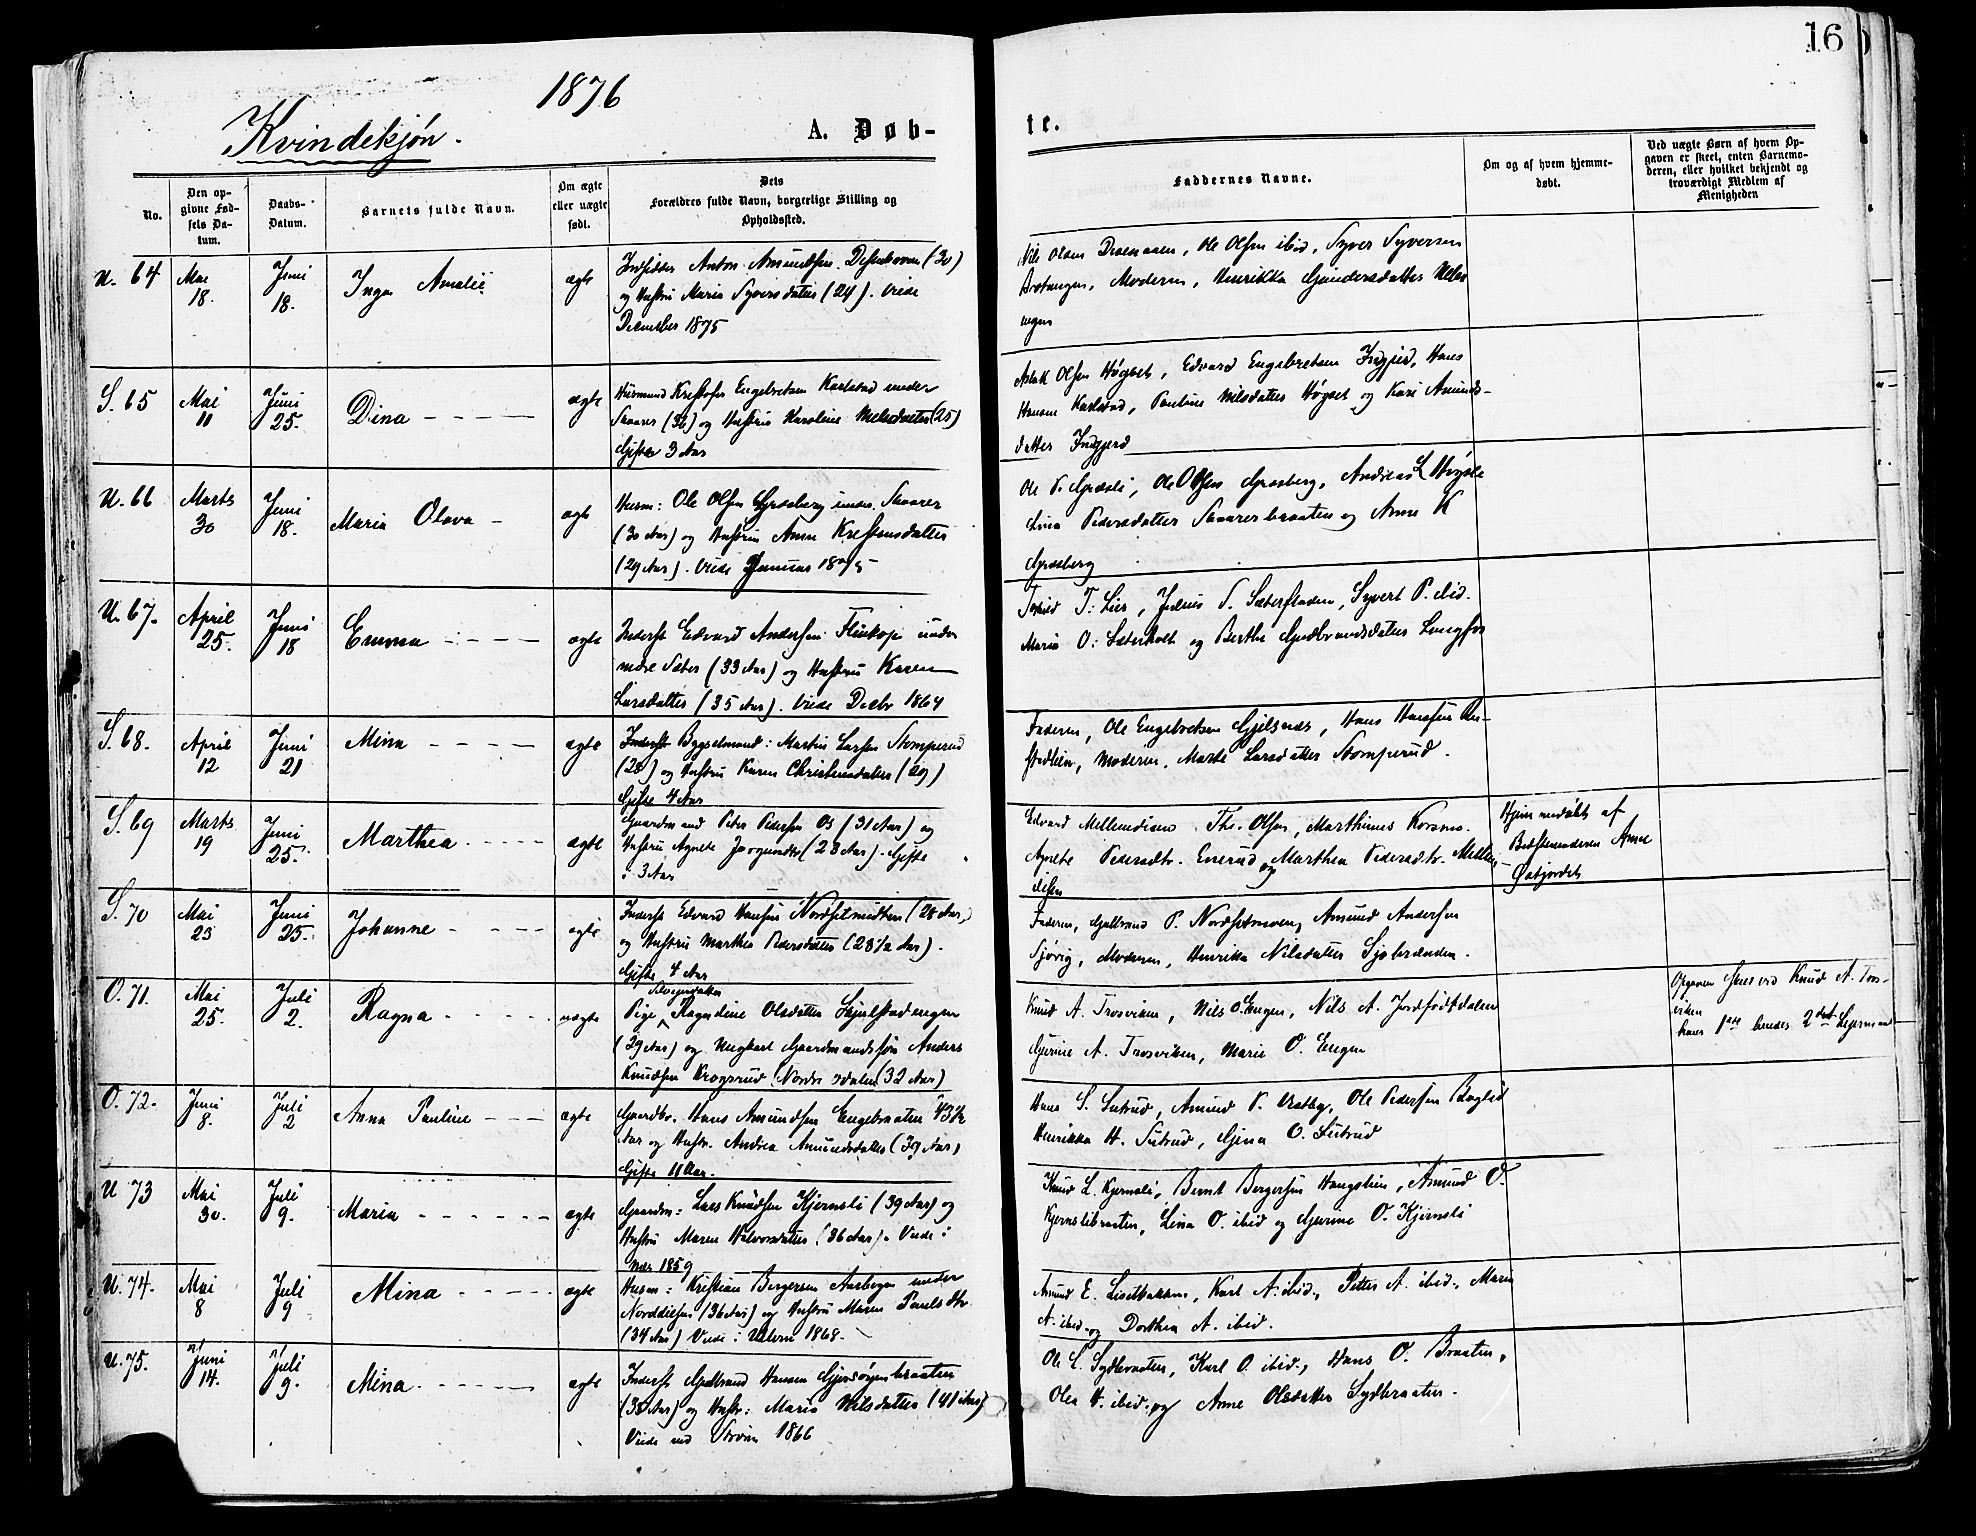 16
1876
Kvindekjøn.
A. Døb-
te.
No.
Den op-
givne Fød-
sels Da-
tum.
Daabs-
Datum.
Barnets fulde Navn.
Om ægte
eller uægte
født.
Dets
Forældres fulde Navn, borgerlige Stilling og
Opholdssted.
Faddernes Navne.
Om og af hvem hjemme-
døbt.
Ved uægte Børn af hvem Op-
gaven er skeet, enten Barnemo-
deren, eller hvilket bekjendt og
troværdigt Medlem af
Menigheden
U. 64 Mai 18. Juni 18. Inga Amalie ægte
Indsidder Anton Amundsen (30)
og Hustru Maria Syversdatter (24). Viede
December 1875
Nils Olsen, Ole Olsen ibid, Syver Syversen
Moderen, Henrikka Gundersdatter
S. 65 Mai 11 Juni 25. Dina ægte
Huusmand Kristofer Engebretsen Karlstad under
Skaarer (36) og Hustru Karoline (25)
Gifte 3 Aar
Aslak Olsen Høgset, Edvard Engebretsen Indgjerd, Hans
Hansen Karlstad, Pauline Nilsdatter Høgset og Kari Amunds-
datter Indgjerd
U. 66 Marts 30 Juni 18. Maria Olava ægte
Husm: Ole Olsen Græsberg under Skaarer
(30 Aar) og Hustru Anne Kristensdatter
(29 Aar). Viede Januar 1875
Ole Olsen Græsberg, Andreas L
Lina Pedersdatter Skaarerbraaten og Anne K
Græsberg
U. 67. April 25. Juni 18 Emma ægte
Inderst Edvard Andersen Flinkop under
Sæter (33 Aar) og Hustru Karen
Larsdatter (35 Aar). Viede Decbr 1864
T. Lier, Julius S. Sæterstaden, Syvert P. ibid.
Maria O. Sæterholt og Berthe Gudbrandsdatter Langfos
S. 68. April 12 Juni 21 Mina ægte
Inderst Bygselmand: Martin Larsen Stomperud
(28) og Hustru Karen Christensdatter (29)
Gifte 4 Aar
Faderen, Ole Engebretsen Gjelsnæs, Hans Hansen
Moderen, Marte Larsdatter Stomperud.
S. 69 Marts 19 Juni 25. Marthea ægte
Gaardmand Peter Pedersen Os (31 Aar) og
Hustru Agnete (23 Aar). Gifte
i 3 Aar
Edvard Thr. Olsen, Marthinus
Agnete Pedersdtr. Enerud og Marthea Pedersdtr.
Hjemmedøbt af
Bedstemoderen Anne
S. 70 Mai 23 Juni 25. Johanne ægte
Inderst Edvard Hansen (28 Aar)
og Hustru Marthea Pedersdatter (23½ Aar).
Gifte 4 Aar
Faderen, Gulbrand P. Nordsetmoen, Amund Andersen
Sjøvig, Moderen, Henrika Nilsdatter
O. 71. Mai 25. Juli 2. Ragna uægte
Pige Ragndine Olsdatter Skjulstadengen
(39 Aar) og Ungkarl Gaardmandssøn Anders
Knudsen Krogsrud, Nordre Odalen (32 Aar)
Knud A. Trosviken, Nils O. Engen, Nils A.
Gjerine A. Trosviken, Marie O. Engen
Opgaven skeet ved Knud A. Tros-
viken
hans 1ste hendes 2det Leiermaal
O. 72. Juni 8. Juli 2 Anna Pauline ægte
Gaardbr. Hans Amundsen Engebraaten 43½
Aar og Hustr. Andrea Amundsdatter (39 Aar)
Gifte 11 Aar.
Hans S. Sutrud, Amund P. Ustby, Ole Pedersen
Henrikka H. Sutrud, Gina O. Sutrud
U 73 Mai 30. Juli 9. Maria ægte
Gaardm: Lars Knudsen Kjernsli (39 Aar) og
Hustru Maren Halvorsdatter (36 Aar). Viede i
1859
Knud L. Kjernsli, Bernt Bergersen Haugstein, Amund O.
Kjernslibraaten, Lina O. ibid og Gjerine O. Kjernsli
U. 74. Mai 8 Juli 9 Mina ægte
Husm: Kristian Bergersen under
(36 Aar) og Hustru Maren Paulsdtr
(34 Aar) Viede i 1868.
Amund E. Karl A. ibid., Petter A. ibid., Maria
A. ibid. og Dorthea A. ibid.
U. 75. Juni 14. Juli 9. Mina ægte
Inderst Gulbrand Hansen
(38 Aar) og Hustr: Maria Nilsdatter (41 Aar)
Viede 1866
Ole E. Sydbraaten, Karl O. ibid., Hans O. Braaten,
Olea H. ibid. og Anne Olsdatter Sydbraaten.